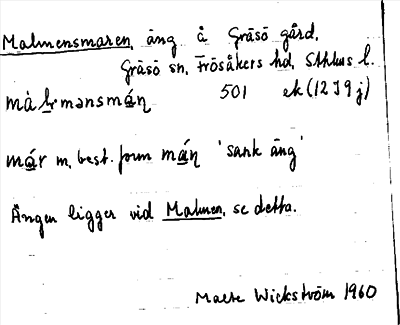 Malmensmaren, äng å Gräsö gård,
Gräsö sn, Frösåkers hd, Sthlms l.
501 ek (12 I 9 j)
mar m, best. form mán 'sank äng'
Ängen ligger vid Malmen, se detta.
Malte Wickström 1960